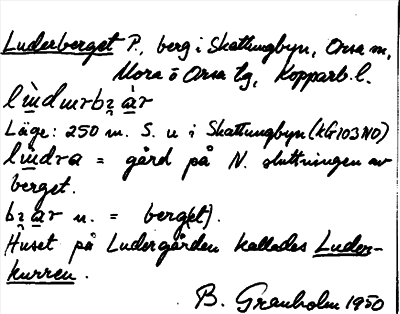 Luderberget P., berg i Skattungbyn, Orsa sn,
Mora o Orsa tg, Kopparb. l.
lùdurbàr
Läge: 250 m. S. u i Skattungbyn (KG103NO)
ludra = gård på N. sluttningen av
berget.
n. = berg(et).
Huset på Ludergården kallades Luder-
kurren.
B. Granholm 1950